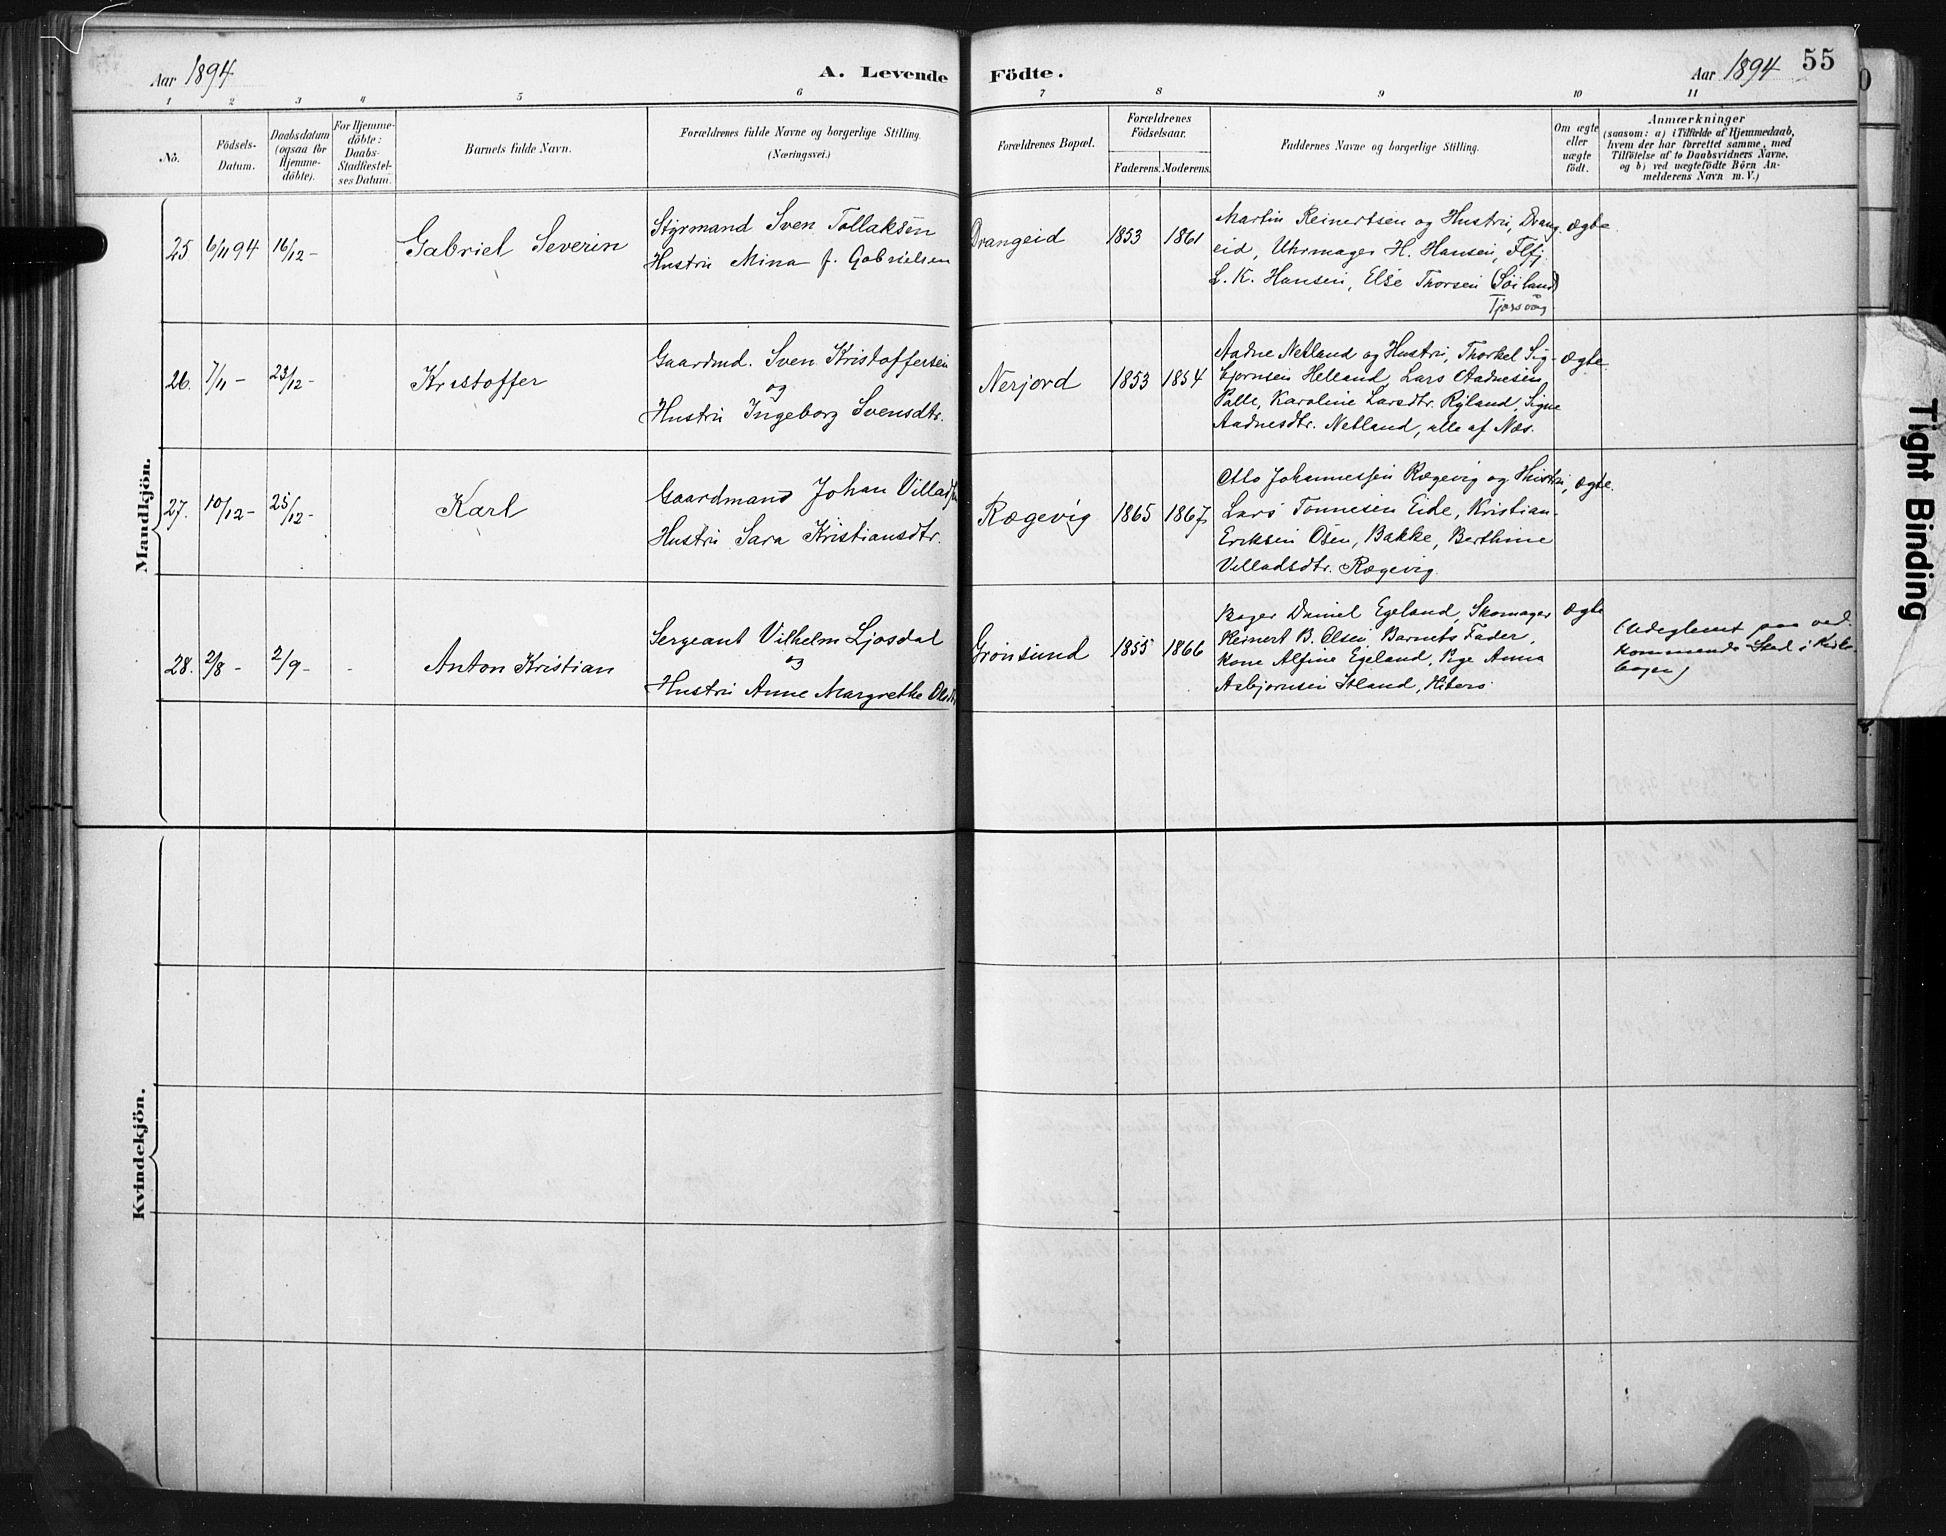 Aar 1894
A. Levende Födte.
Aar 1894 55
1 2 3 4 5 6 7 8 9 10 11
No.
Födsels-
Datum.
Daabsdatum
(ogsaa for
Hjemme-
döbte).
For Hjemme-
döbte:
Daabs-
Stadfæstel-
ses Datum.
Barnets fulde Navn.
Forældrenes fulde Navne og borgerlige Stilling.
(Næringsvei.)
Forældrenes Bopæl.
Forældrenes
Födselsaar.
Faderens. Moderens.
Faddernes Navne og borgerlige Stilling.
Om ægte
eller
uægte
födt.
Anmærkninger
(saasom: a) i Tilfælde af Hjemmedaab,
hvem der har forrettet samme, med
Tilföielse af to Daabsvidners Navne,
og b) ved uægtefödte Börn An-
melderens Navn m. V.)
Mandkjön.
25 6/11 94 16/12 -
Gabriel Severin
Styrmand Sven Tollaksen
Hustru Mina f. Gabrielsen
Drangeid 1853 1861
Martin Reinertsen og Hustru, Drang-
eid, Uhrmager H. Hansen, Flfj.
L. K. Hansen, Else Thorsen (Söiland)
Tjorsvåg
ægte
26. 7/11 - 23/12 -
Kristoffer
Gaardmd. Sven Kristoffersen
og
Hustru Ingeborg Svensdtr.
Nerjord 1853 1854
Aadne Netland og Hustru, Thorkel Sig-
bjornsen Helland, Lars Aadnesen
Palle, Karoline Larsdtr. Ryland, Signe
Aadnesdtr. Netland, alle af Næs.
ægte
27. 10/12 - 25/12 -
Karl
Gaardmand Johan Villadsen
Hustru Sara Kristiansdtr.
Rægevig 1865 1867
Otto Johannessen Rægevig og Hustru,
Lars Tonnesen Eide, Kristian
Eriksen Osen, Bakke, Berthine
Villadsdtr. Rægevig.
ægte
28. 2/8 - 2/9 - -
Anton Kristian
Sergeant Vilhelm Ljosdal
og
Hustru Anne Margrethe Olsdtr
Grönsund 1855 1866
Bager Daniel Egeland, Skomager
Reinert B. Olsen, Barnets Fader,
Kone Alfine Egeland, Pige Anna
Asbjornsen Itland, Hiterö
ægte
(Udeglemt paa ved-
kommende Sted i Kirke-
bogen)
Kvindekjön.
Tight Binding